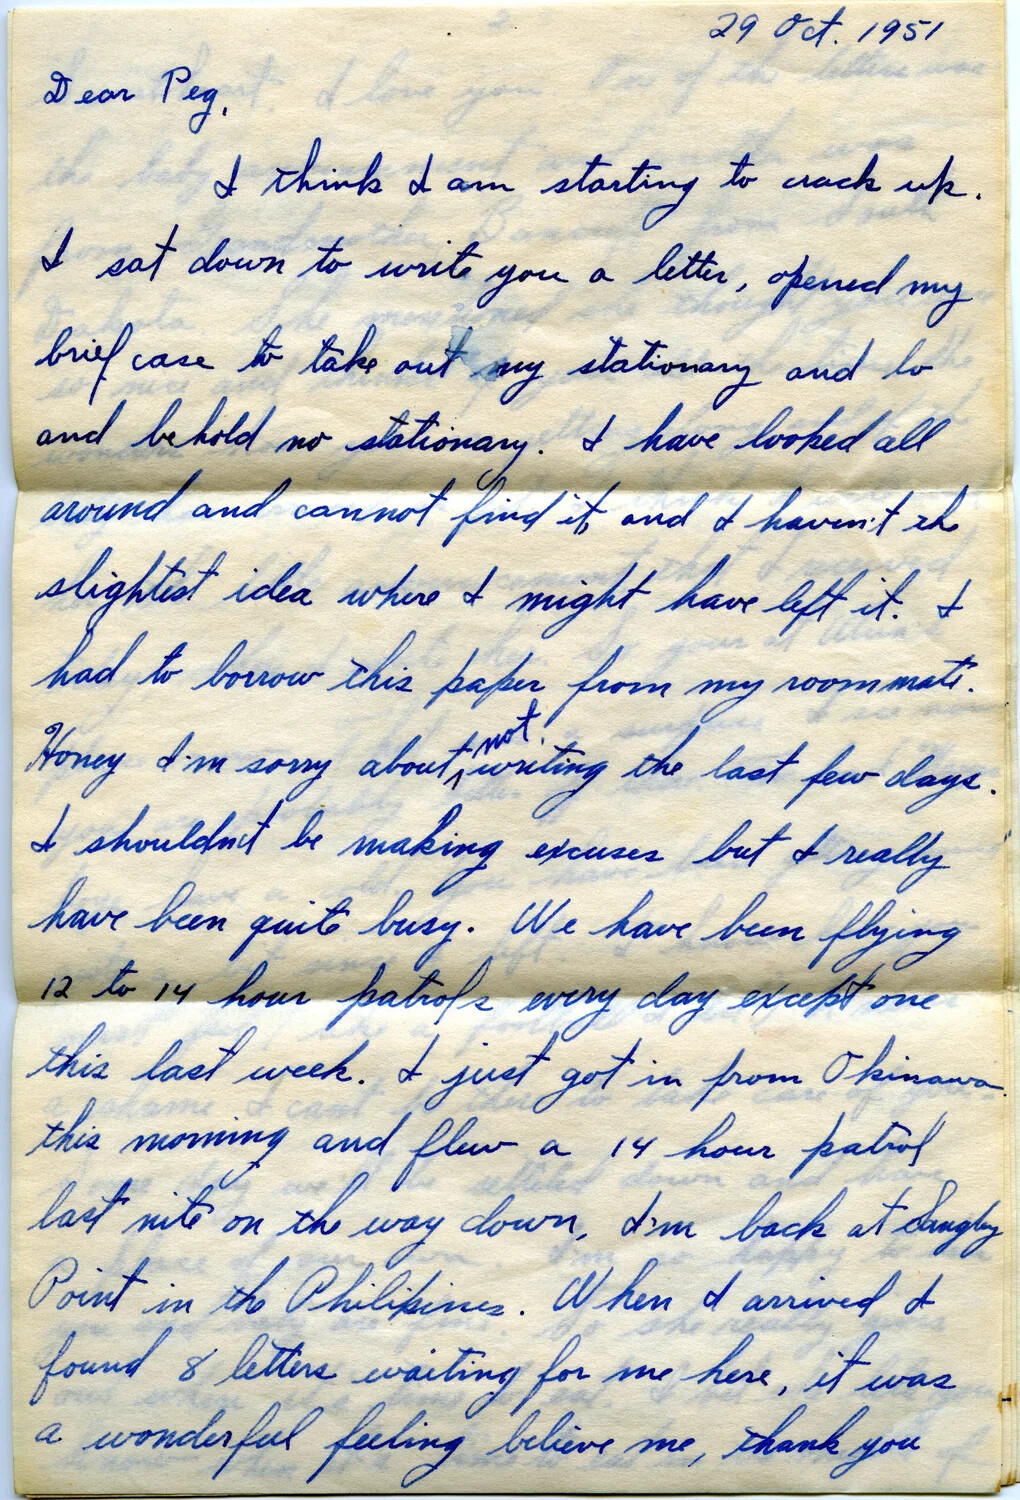 29 Oct. 1951
Dear Peg,
I think I am starting to crack up.
I sat down to write you a letter, opened my
brief case to take out my stationary and lo
and behold no stationary. I have looked all
around and cannot find it, and I haven't the
slightest idea where I might have left it. I
had to borrow this paper from my roommate.
Honey I'm sorry about not writing the last few days.
I shouldn't be making excuses but I really
have been quite busy. We have been flying
12 to 14 hour patrols every day except one
this last week. I just got in from Okinawa
this morning and flew a 14 hour patrol
last nite on the way down, I'm back at Sangley
Point in the Philipines. When I arrived I
found 8 letters waiting for me here, it was
a wonderful feeling believe me, thank you